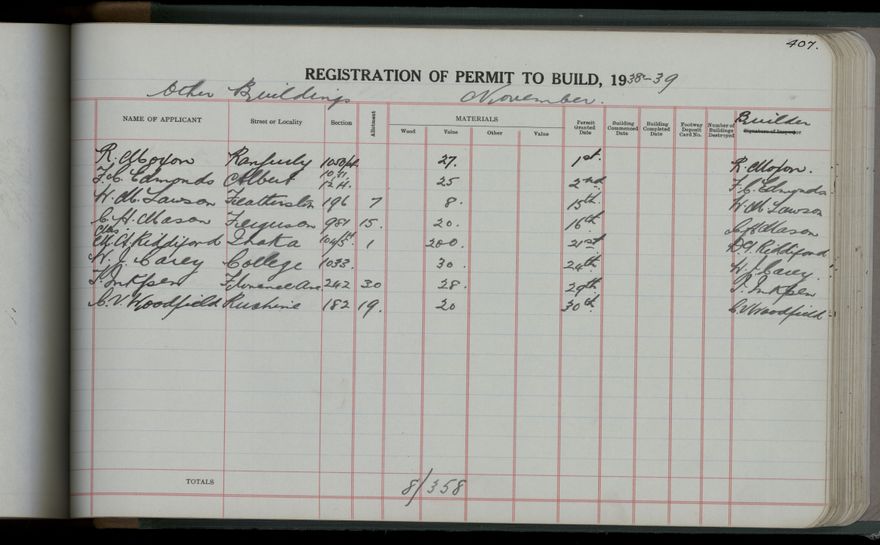 407.
REGISTRATION OF PERMIT TO BUILD, 1938-39
Other Buildings November.
NAME OF APPLICANT Street or Locality Section Allotment MATERIALS Wood Value Other Value Permit Granted Date Building Commenced Date Building Completed Date Footway Deposit Card No. Number of Buildings Destroyed Builder Signature of Inspector
R. Moxon Ranfurly 27. 1st. R. Moxon.
F. C. Edmunds Albert 25 2nd F. C. Edmunds
W. M. Lawson Featherston 196 7 8. 15th W. M. Lawson
C. H. Mason Ferguson 981 15. 20. 16th C H Mason
Riddiford Ihaka 1 200. 21st Riddiford
W. J. Carey College 1033. 30. 24th W. J. Carey.
T. Inkpen Florence Ave 242 30 28. 29th T. Inkpen
C. V. Woodfield Ruahine 182 19. 20 30th C. V. Woodfield
TOTALS 8/358